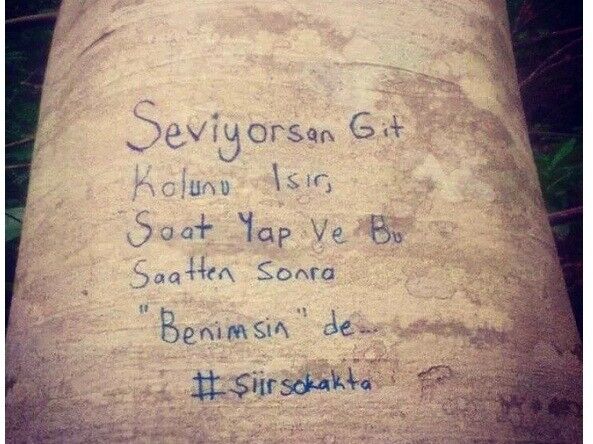 Seviyorsan Git
Kolunu Isır,
Saat Yap Ve Bu
Saatten Sonra
"Benimsin" de...
#Şiirsokakta